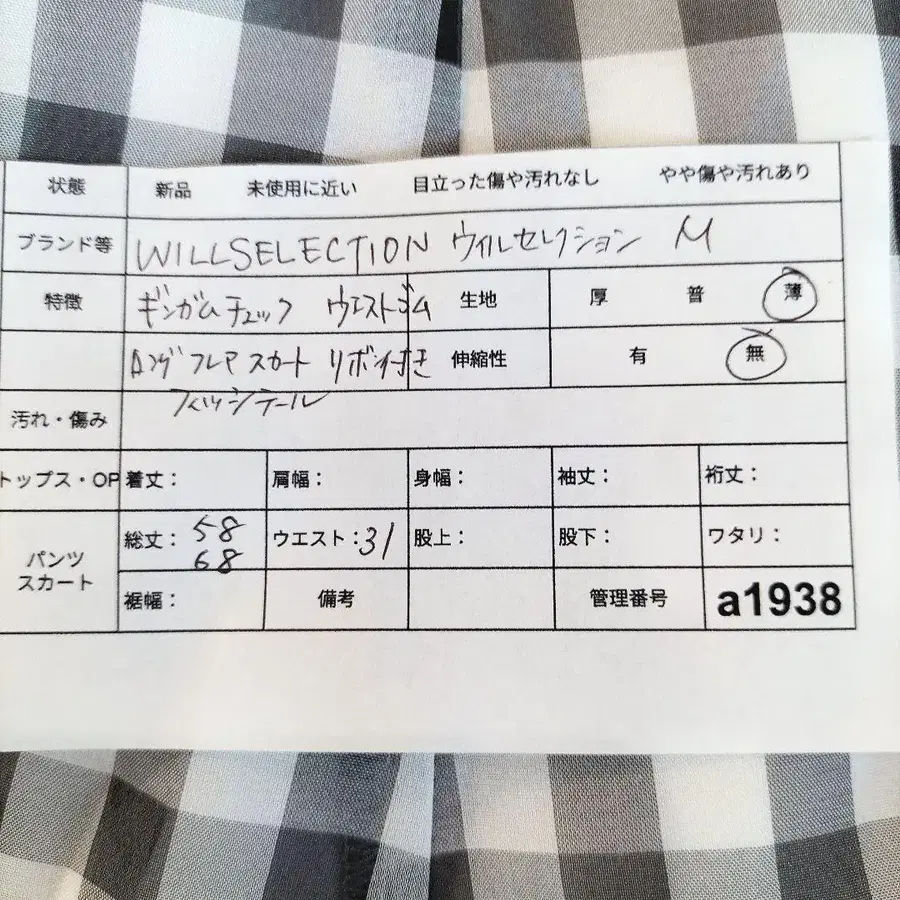 状態 新品 未使用に近い 目立った傷や汚れなし やや傷や汚れあり
ブランド等 WILLSELECTION ウィルセレクション M
特徴 ギンガムチェック ウエストゴム 生地 厚 普 薄
ロングフレアスカート リボン付き 伸縮性 有 無
フィッシュテール
汚れ・傷み
トップス・OP 着丈： 肩幅： 身幅： 袖丈： 裄丈：
パンツ スカート 総丈：58 68 ウエスト：31 股上： 股下： ワタリ：
裾幅： 備考 管理番号 a1938